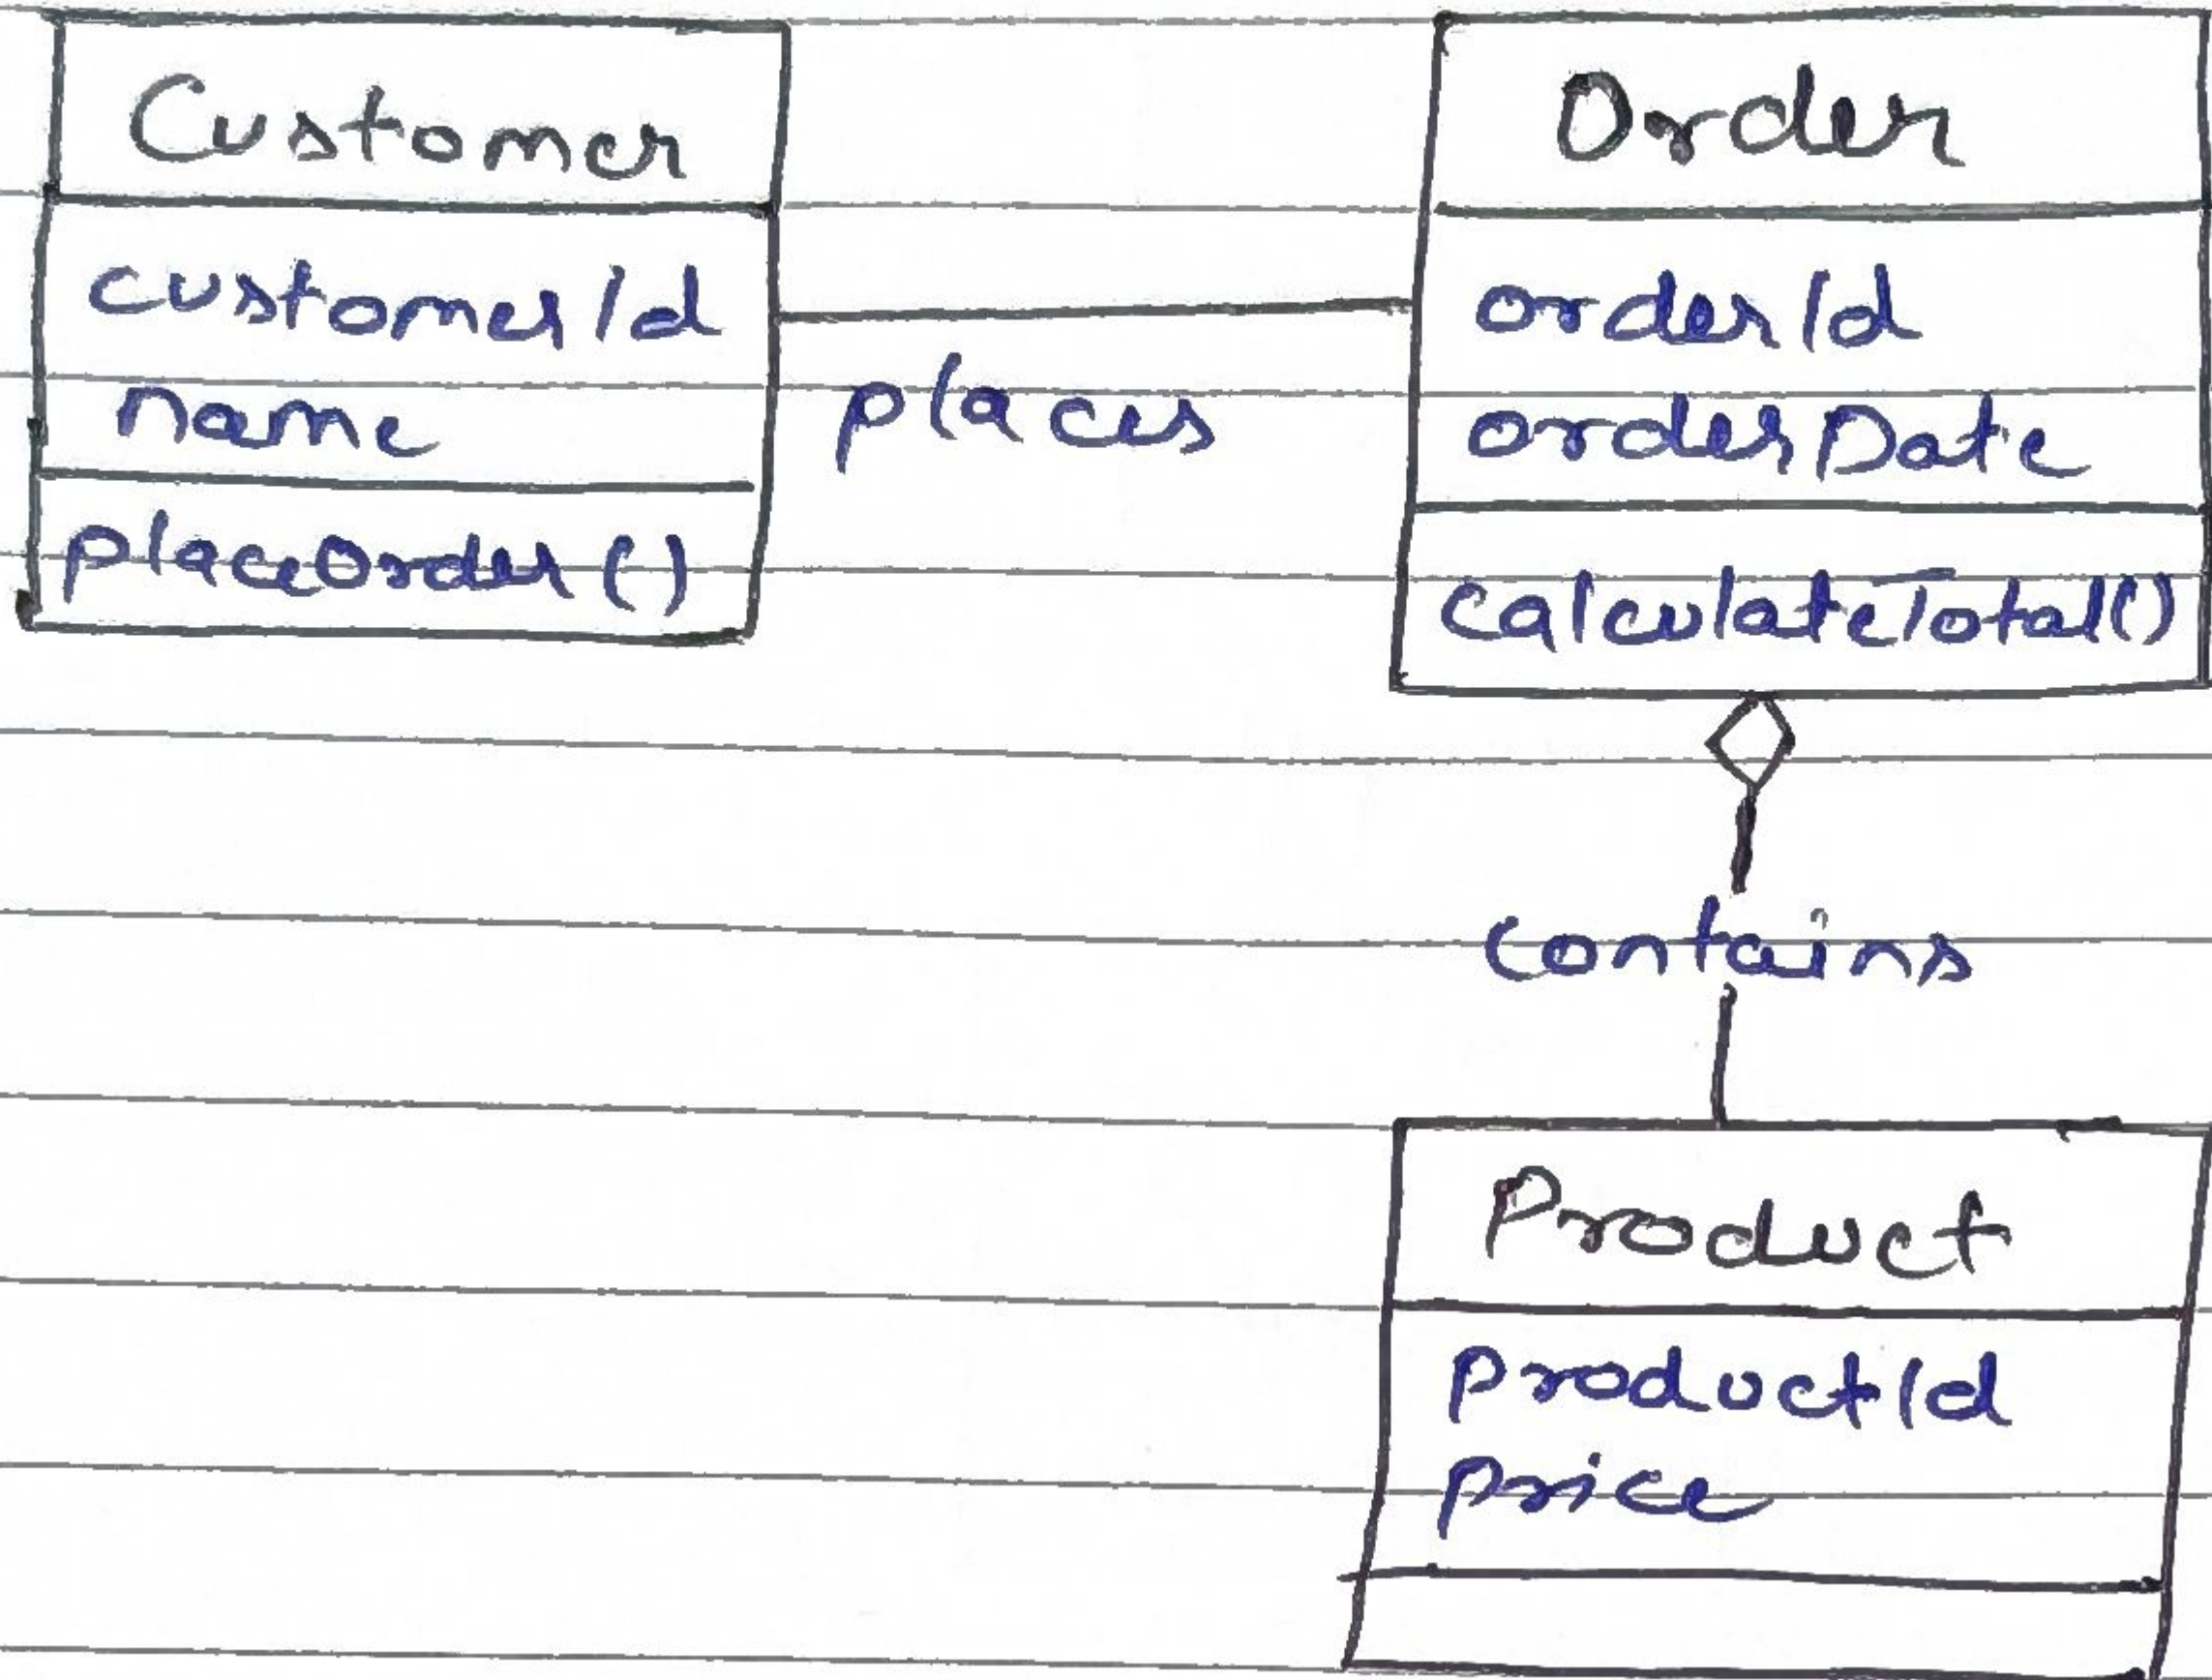 Customer
customerId
name
placeOrder()
places
Order
orderId
orderDate
calculateTotal()
contains
Product
productId
price